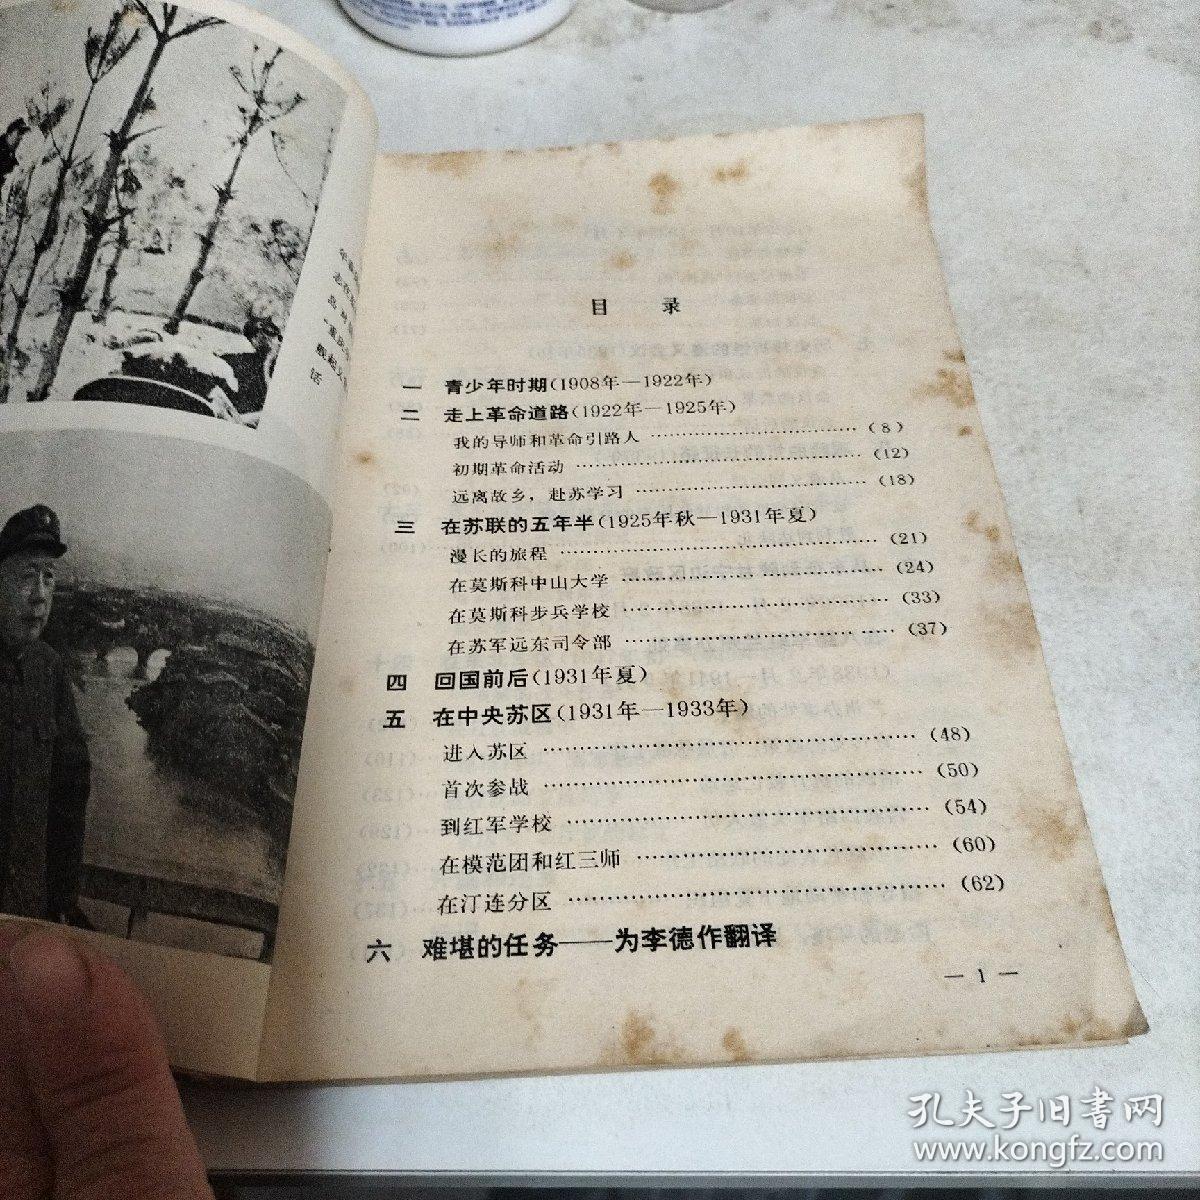 目 录
一 青少年时期(1908年—1922年)
二 走上革命道路(1922年—1925年)
我的导师和革命引路人 ………………………… (8)
初期革命活动 ………………………………… (12)
远离故乡，赴苏学习 ………………………… (18)
三 在苏联的五年半(1925年秋—1931年夏)
漫长的旅程 …………………………………… (21)
在莫斯科中山大学 …………………………… (24)
在莫斯科步兵学校 …………………………… (33)
在苏军远东司令部 …………………………… (37)
四 回国前后(1931年夏)
五 在中央苏区(1931年—1933年)
进入苏区 ……………………………………… (48)
首次参战 ……………………………………… (50)
到红军学校 …………………………………… (54)
在模范团和红三师 …………………………… (60)
在汀连分区 …………………………………… (62)
六 难堪的任务——为李德作翻译
— 1 —
孔夫子旧书网
www.kongfz.com